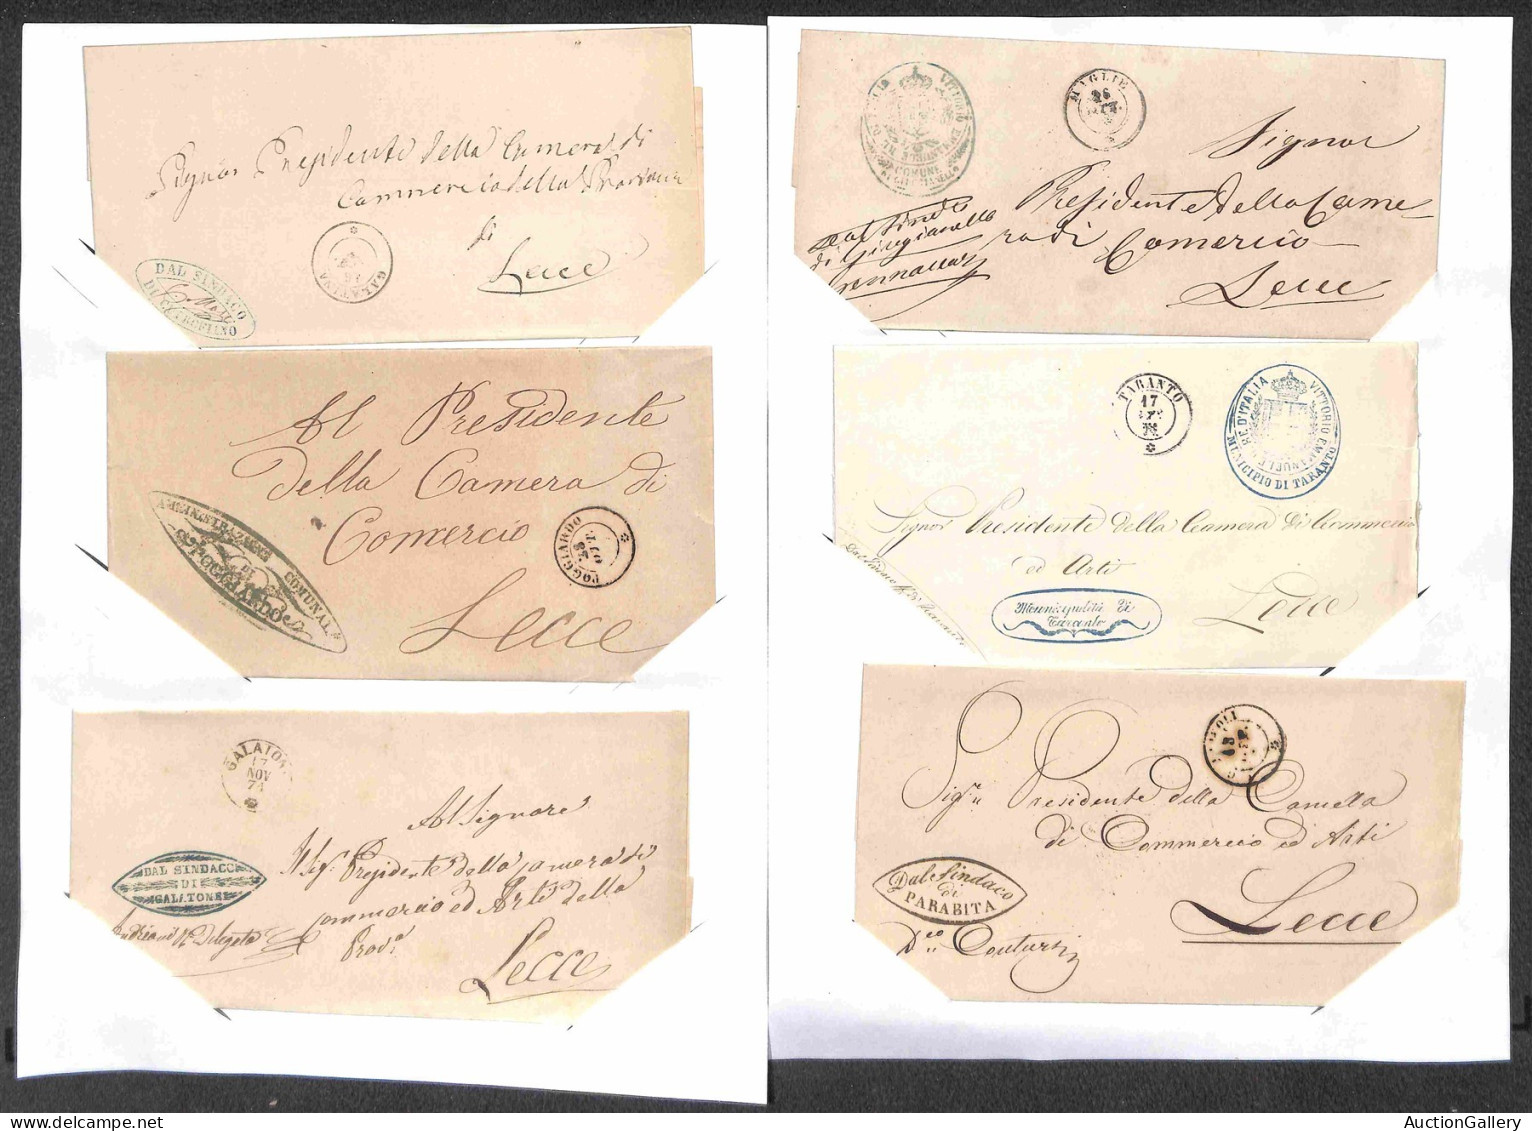 Signor Presidente della Camera di
Commercio della Provincia
di
Lecce
GALATINA
DAL SINDACO
DI CUTROFIANO
VITTORIO
COMUNE
MAGLIE
26
Signor
Presidente della Came-
ra di Comercio
Lecce
Dal Sindaco
di Giuggianello
Al Presidente
della Camera di
Comercio
Lecce
AMMINISTRAZIONE COMUNALE
DI
POGGIARDO
POGGIARDO
28
OTT
TARANTO
17
VITTORIO EMANUELE II RE D'ITALIA
MUNICIPIO DI TARANTO
Signor Presidente della Camera di Commercio
ed Arti
Lecce
Municipalità di
Taranto
GALATON
17
NOV
74
Al Signore
Il Sig.r Presidente della Camera di
Commercio ed Arti della
Prov.a
Lecce
DAL SINDACO
DI
GALATONE
Delegato
POLI
13
Sig.r Presidente della Camera
di Commercio ed Arti
Lecce
Dal Sindaco
di
PARABITA
AuctionGallery